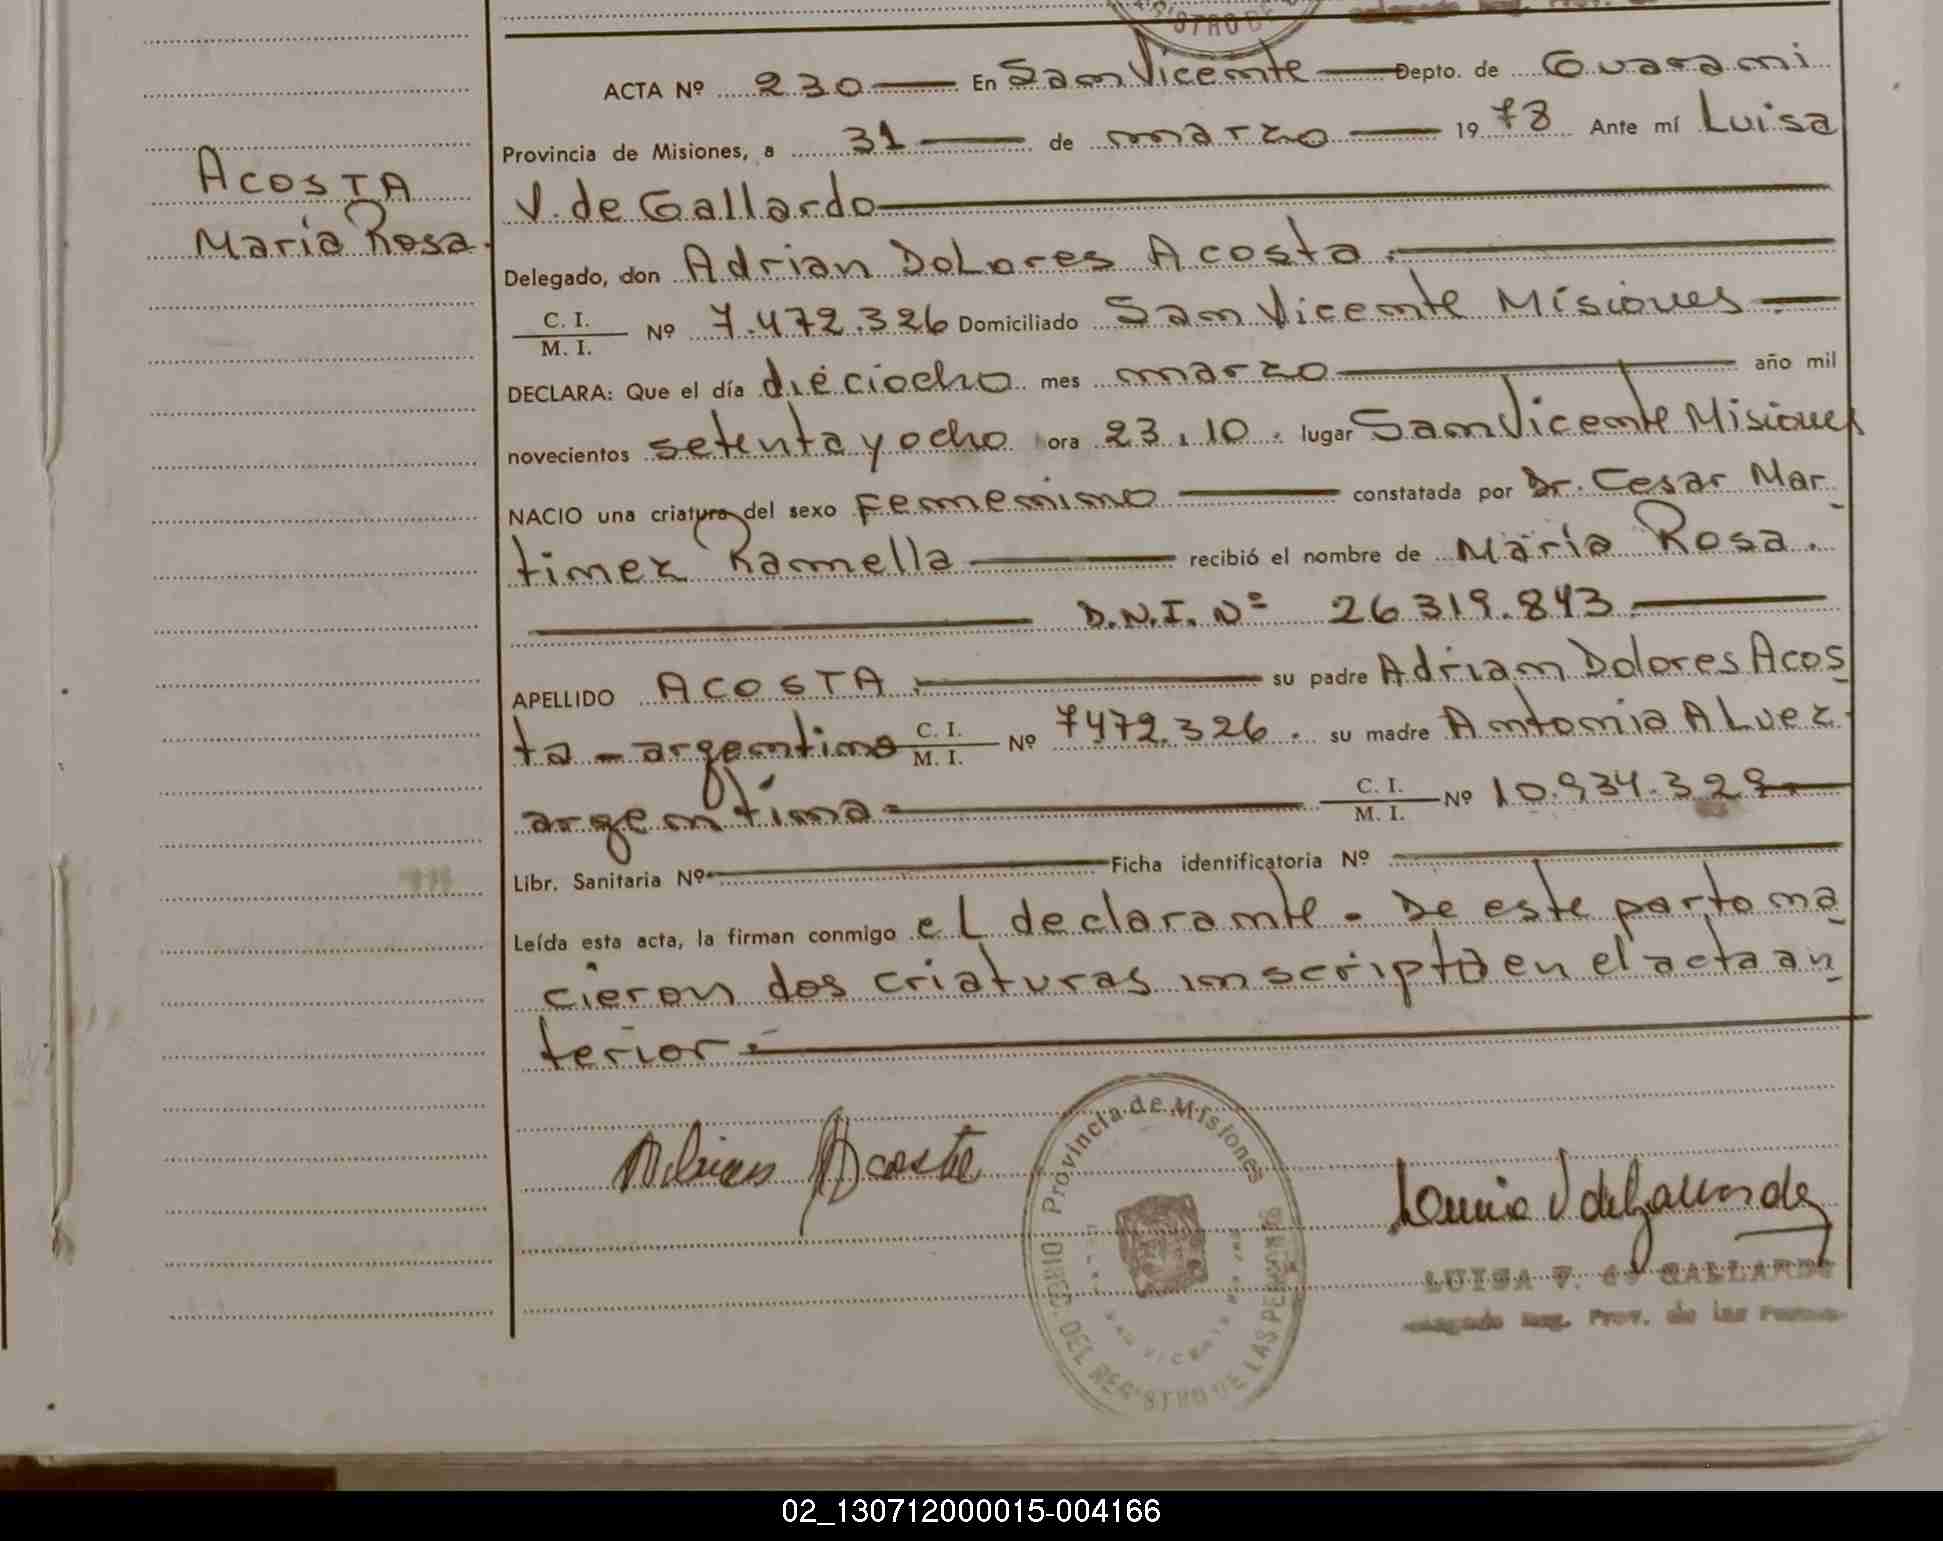 ACTA Nº 230 En San Vicente Depto. de Guarani
Provincia de Misiones, a 31 de marzo 1978 Ante mí Luisa
V. de Gallardo
Acosta
Maria Rosa.
Delegado, don Adrian Dolores Acosta.
C. I.
M. I. Nº 7.472.326 Domiciliado San Vicente Misiones
DECLARA: Que el día dieciocho mes marzo año mil
novecientos setenta y ocho hora 23.10. lugar San Vicente Misiones
NACIO una criatura del sexo Femenino constatada por Dr. Cesar Mar
tinez Ramella recibió el nombre de Maria Rosa.
D.N.I. Nº 26319.843
APELLIDO ACOSTA. su padre Adrian Dolores Acos
ta - argentino C. I. M. I. Nº 7472.326. su madre Antonia Aluez.
argentina C. I. M. I. Nº 10.934.329
Libr. Sanitaria Nº Ficha identificatoria Nº
Leída esta acta, la firman conmigo el declarante. De este parto na
cieron dos criaturas inscripta en el acta an
terior.
Adrian Acosta
Luisa V de Gallardo
Provincia de Misiones
DIREC. DEL REGISTRO DE LAS PERSONAS
SAN VICENTE
LUISA V. de GALLARDO
Delegado Reg. Prov. de las Personas
02_130712000015-004166